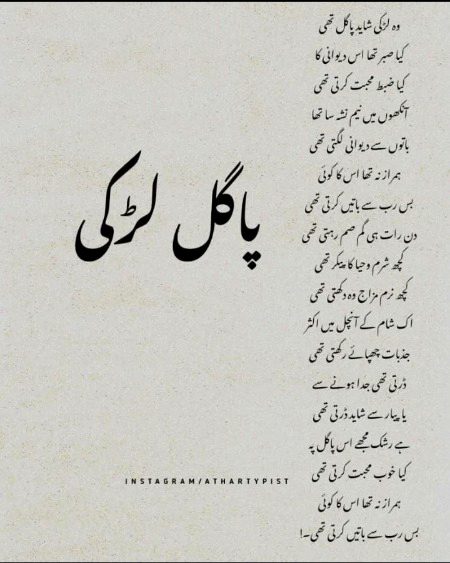 وہ لڑکی شاید پاگل تھی
کیا صبر تھا اس دیوانی کا
کیا ضبط محبت کرتی تھی
آنکھوں میں نیم نشہ سا تھا
باتوں سے دیوانی لگتی تھی
ہمراز نہ تھا اس کا کوئی
بس رب سے باتیں کرتی تھی
دن رات ہی گم صم رہتی تھی
کچھ شرم و حیا کا پیکر تھی
کچھ نرم مزاج وہ دکھتی تھی
اک شام کے آنچل میں اکثر
جذبات چھپائے رکھتی تھی
ڈرتی تھی جدا ہونے سے
یا پیار سے شاید ڈرتی تھی
ہے رشک مجھے اس پاگل پہ
کیا خوب محبت کرتی تھی
ہمراز نہ تھا اس کا کوئی
بس رب سے باتیں کرتی تھی۔!
پاگل لڑکی
INSTAGRAM/ATHARTYPIST